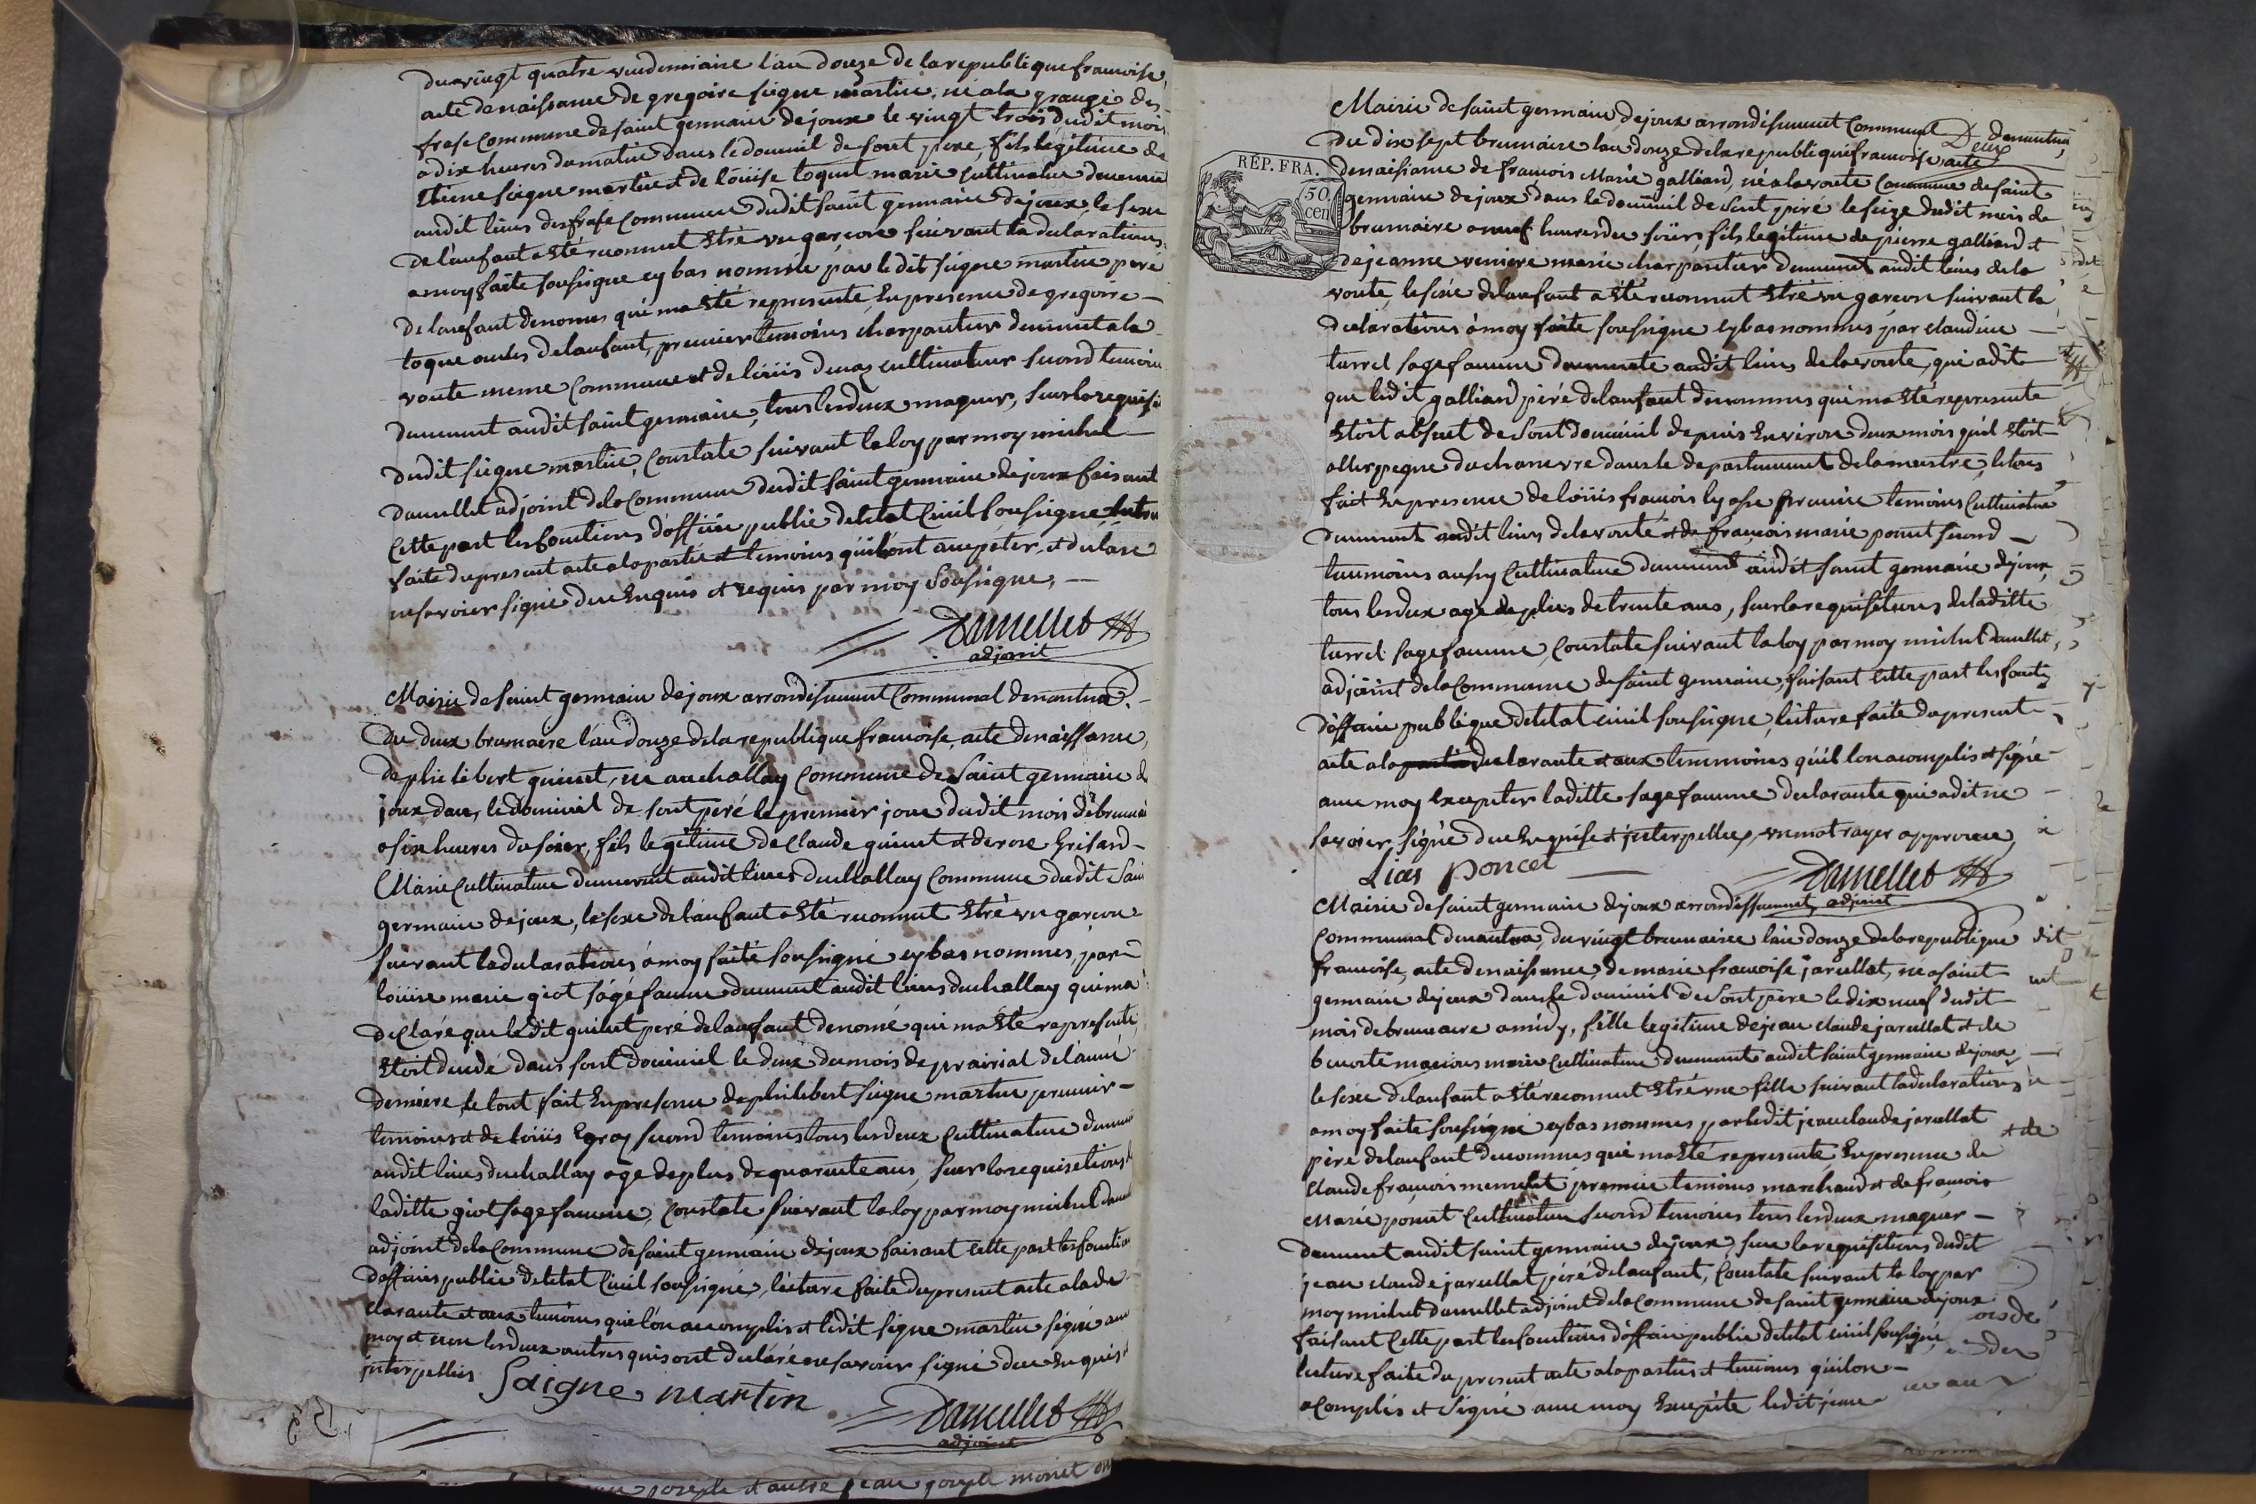 du vingt quatre vendemiaire l'an douze de la republique francoise,
acte de naissance de gregoire seigne martin, né a la grange des
frase Commune de saint germain de joux le vingt trois dudit mois
a dix heures du matin dans le domicil de sont pere, fils legitime de
Etiene seigne martin et de loüise toquet marie cultivateur demeurant
audit lieus des frase Commune dudit saint germain de joux, le sexe
de l'enfant a été reconnut Etre un garçon suivant la declarations
a moy faite sousigne cy bas nommée par le dit seigne martin peré
de lanfant denomes qui ma été represente, En presence de gregoire
toque oncles de lanfant, premier temoins charpantier demeurant a la
voute meme Commune et de loüis ducraz cultivateur second temoin
demeurant audit saint germain, tous les deux majeur, sur la requisi
dudit seigne martin, Constate suivant la loy par moy michel
damellet adjoint de la Commune dudit saint germain de joux faisant
Cette part les fonctions d'officier public de letat Civil Sousigne, lecture
faite du present acte a la partie et temoins qu'il ont accepter, et declare
ne savoir signe de ce Enquis et requis par moy Sousigne,
Damellet
adjoint
Mairie de saint germain de joux arrondisement Communal de nantua
Du deux brumaire l'an douze de la republique francoise, acte de naissance,
de philibert guinet, ne au challay Commune de Saint germain de
joux dans le domicil de sont peré le premier jour dudit mois de brumai
a six heures du soier, fils legitime de Claude guinet et de rose grisard
Marie Cultivateur demeurant audit lieus du challay Commune dudit Sain
germain de joux, le sexe de l'anfant a été reconnut Etré un garcon
suivant la declarations á moy faité sousigné cy bas nommes, par
loüise marie giot ságe famme demeurant audit lieus du challay qui ma
de Claré que le dit guinet peré de lanfant denomé qui ma été represente
Etoit decedé dans sont domicil le deux du mois de prairial de l'anné
derniere le tout fait En presence de philibert seigne martin premier
temoins et de loüis Egroz second temoins tous les deux Cultivateur demeur
audit lieus du challay age de plus de quarante ans, sur la requisetions de
laditte giot sage famme, Constate suivant la loy par moy michel dame
adjoint de la Commune de saint germain de joux faisant cette part les fonction
d'officier public de letat Civil sousigné, lecture faite du present acte a la de
clarante et aux temoins qu'il on acomplis et le dit seigne martin signé avec
moy et non les deux autres qui sont declaré ne savoier signé de ce Enquis et
jnterpelles
Saigne martin
Damellet
adjoint
joseph et ausse jean joseph moriet
Mairie de saint germain de joux arrondisement Communal De nantua,
Deux
Du dix sept brumaire lan douze de la republique francoise acte
de naissance de francois Marie galliard, né a la voute Commune de saint
germain de joux dans le domicil de sont peré le seize dudit mois de
brumaire a neuf heures du soir, fils legitime de pierre galliard et
de jeanne vuiniere marie charpantier demeurant audit lieus de la
voute, le sexe de lanfant a été reconnut Etré un garcon suivant la
declarations á moy faite sousigne cy bas nommes, par claudine
turrel sage famme demeurante audit lieus de la voute, qui a dit
que le dit galliard peré de lanfant denommes qui ma été represente
Etoit absent de sont domicil depuis Environ deux mois qu'il Etoit
aller pegne du chanevre dans le departement de la meustre, le tous
fait En presence de loüis francois lyase premier temoins Cultivateur
demeurant audit lieus de la voute et de francois marie poncet second
temmoins aussy Cultivateur demeurant audit saint germain de joux,
tous les deux age de plus de trente ans, sur la requisetions de laditte
turrel sage famme, Constate suivant la loy par moy michel damellet,
adjoint de la Commune de saint germain, faisant Cette part les fonct
d'officier publique de letat civil sousigne, lecture faite du present
acte a la partie declarante et aux temmoins qu'il lon acomplis et signe
avec moy Excepter laditte sage famme declarante qui a dit ne
savoier signé de ce Enquise et jnterpellee, un mot rayer approuve
Lias poncet
Damellet
adjoint
Mairie de saint germain de joux arrondissement
Communal de nantua, du vingt brumaire l'an douze de la republique
francoise, acte de naissance, de marie francoise jarcellat, ne a saint
germain de joux dans le domicil de sont pere le dix neuf dudit
mois de brumaire a midy, fille legitime de jean claude jarcellat et de
benoite manious marie Cultivateur demeurant audit saint germain de joux,
le sexe de lanfant a été reconnut Etré une fille suivant la declarations
a moy faite sousigné cy bas nommes par le dit jean claude jarcellat
pére de lanfant denommes qui ma été represente, En presence de
Claude francois mermillet premier temoins marchand et de francois
Marie poncet Cultivateur Second temoins tous les deux majeur
demeurant audit saint germain de joux, sur la requisitions dudit
jean claude jarcellat peré de lanfant, Constate suivant la loy par
moy michel damellet adjoint de la Commune de saint germain de joux
faisant Cette part les fonctions d'officier public de letat civil sousigné,
lecture faite du present acte a la parties et temoins qu'il on
a Complis et Signé avec moy Excepte ledit jean
RÉP. FRA.
50
cen
dit
et de